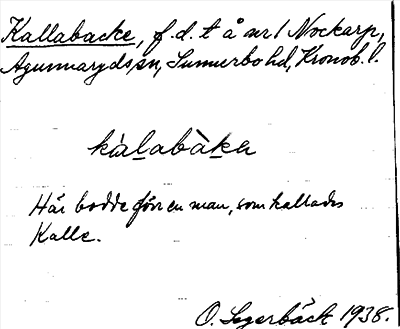 Kallabacke, f.d. t å nr 1 Nockarp,
Agunnaryds sn, Sunnerbo hd, Kronob. l.
kàlabàka
Här bodde förr en man, som kallades
Kalle.
O. Segerbäck 1938.